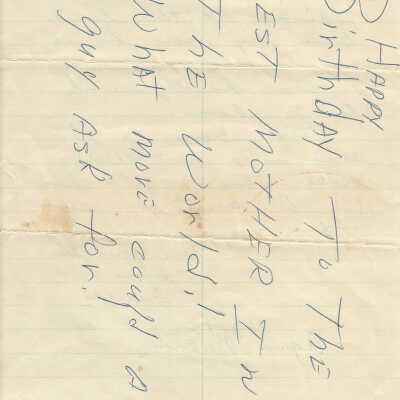 HAPPY
Birthday To The
EST MOTHER In
THE World!
WHAT more could a
guy Ask for.